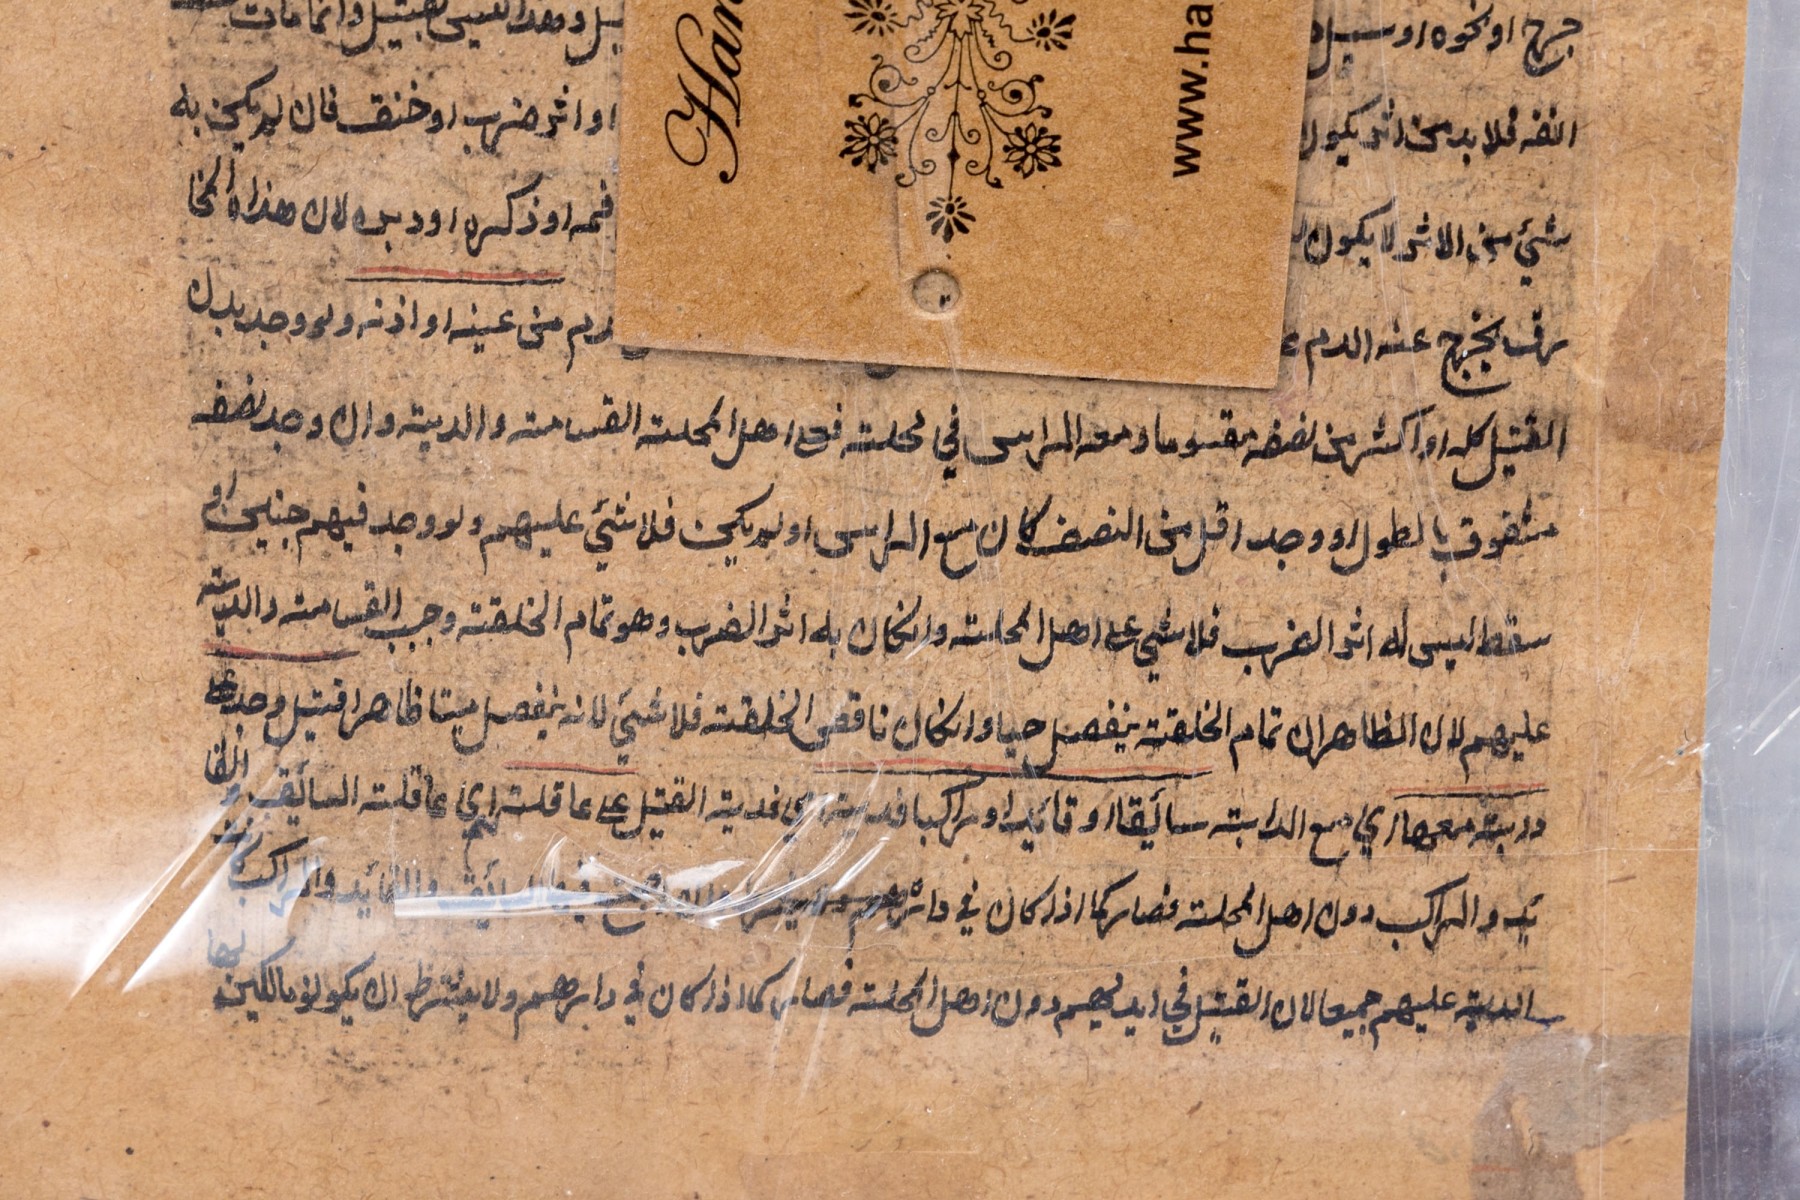 جرح او نحوه او سبيل
بل وهذا لليس بقتيل وانما مات
انفه فلا بد من اثر يكون
او اثر ضرب او خنق فان لم يكن به
شيء من الاثر لا يكون
فمه او ذكره او دبره لان هذه المخا
رق يخرج عنه الدم
دم من عينه او اذنه ولو وجد بدن
القتيل كله او اكثر من نصفه مقسوما ومعه الراس في محلته فعلى اهل المحلته القسامته والديته وان وجد نصفه
مشقوق بالطول او وجد اقل من النصف كان مع الراس او لم يكن فلا شيء عليهم ولو وجد فيهم جنين او
سقط ليس له اثر الضرب فلا شيء على اهل المحلته وانكان به اثر الضرب وهو تمام الخلقته وجب القسامته والديته
عليهم لان الظاهر ان تمام الخلقته ينفصل حيا وانكان ناقص الخلقته فلا شيء لانه ينفصل ميتا ظاهرا قتيل وجد على
دابته معها اي مع الدابته سائقا او قائد او راكبا فديته اي فديته القتيل على عاقلته اي عاقلتهم السائق والقا
ئد والراكب دون اهل المحلته فصار كما اذا كان في دارهم السائق والقائد والراكب كانت
الديته عليهم جميعا لان القتيل في ايديهم دون اهل المحلته فصار كما اذا كان في دارهم ولا يشترط ان يكونوا مالكين لها
Han
www.ha